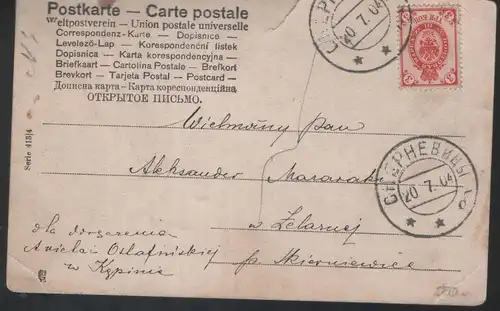 Postkarte — Carte postale
Weltpostverein — Union postale universelle
Correspondenz-Karte — Dopisnice —
Levelező-Lap — Korespondenční lístek
Dopisnica — Karta korespondencyjna —
Briefkaart — Cartolina Postale — Brefkort
Brevkort — Tarjeta Postal — Postcard —
Дописна карта — Карта кореспонденційна
ОТКРЫТОЕ ПИСЬМО.
20 7. 04
3 3
Serie 413|4
Wielmożny Pan
Aleksander Mazaraki
СКЕРНЕВИЦЫ
20 7. 04
w Zelaznej
p. Skierniewice
dla doręczenia
Anieli
w Kępinie